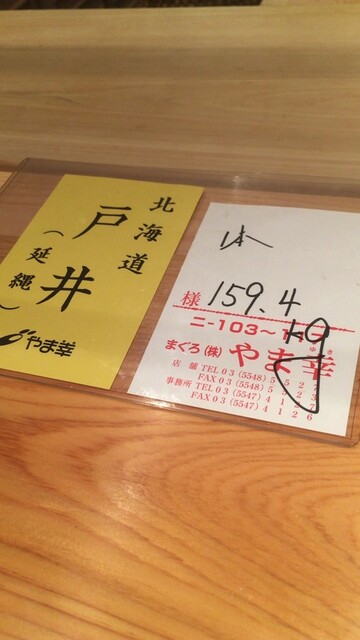 北海道
戸井
（延縄）
やま幸
様 159.4
kg
ニ-103~
まぐろ(株) やま幸
ゆき
店舗 TEL 03 (5548) 5527
FAX 03 (5548) 5523
事務所 TEL 03 (5547) 4117
FAX 03 (5547) 4126